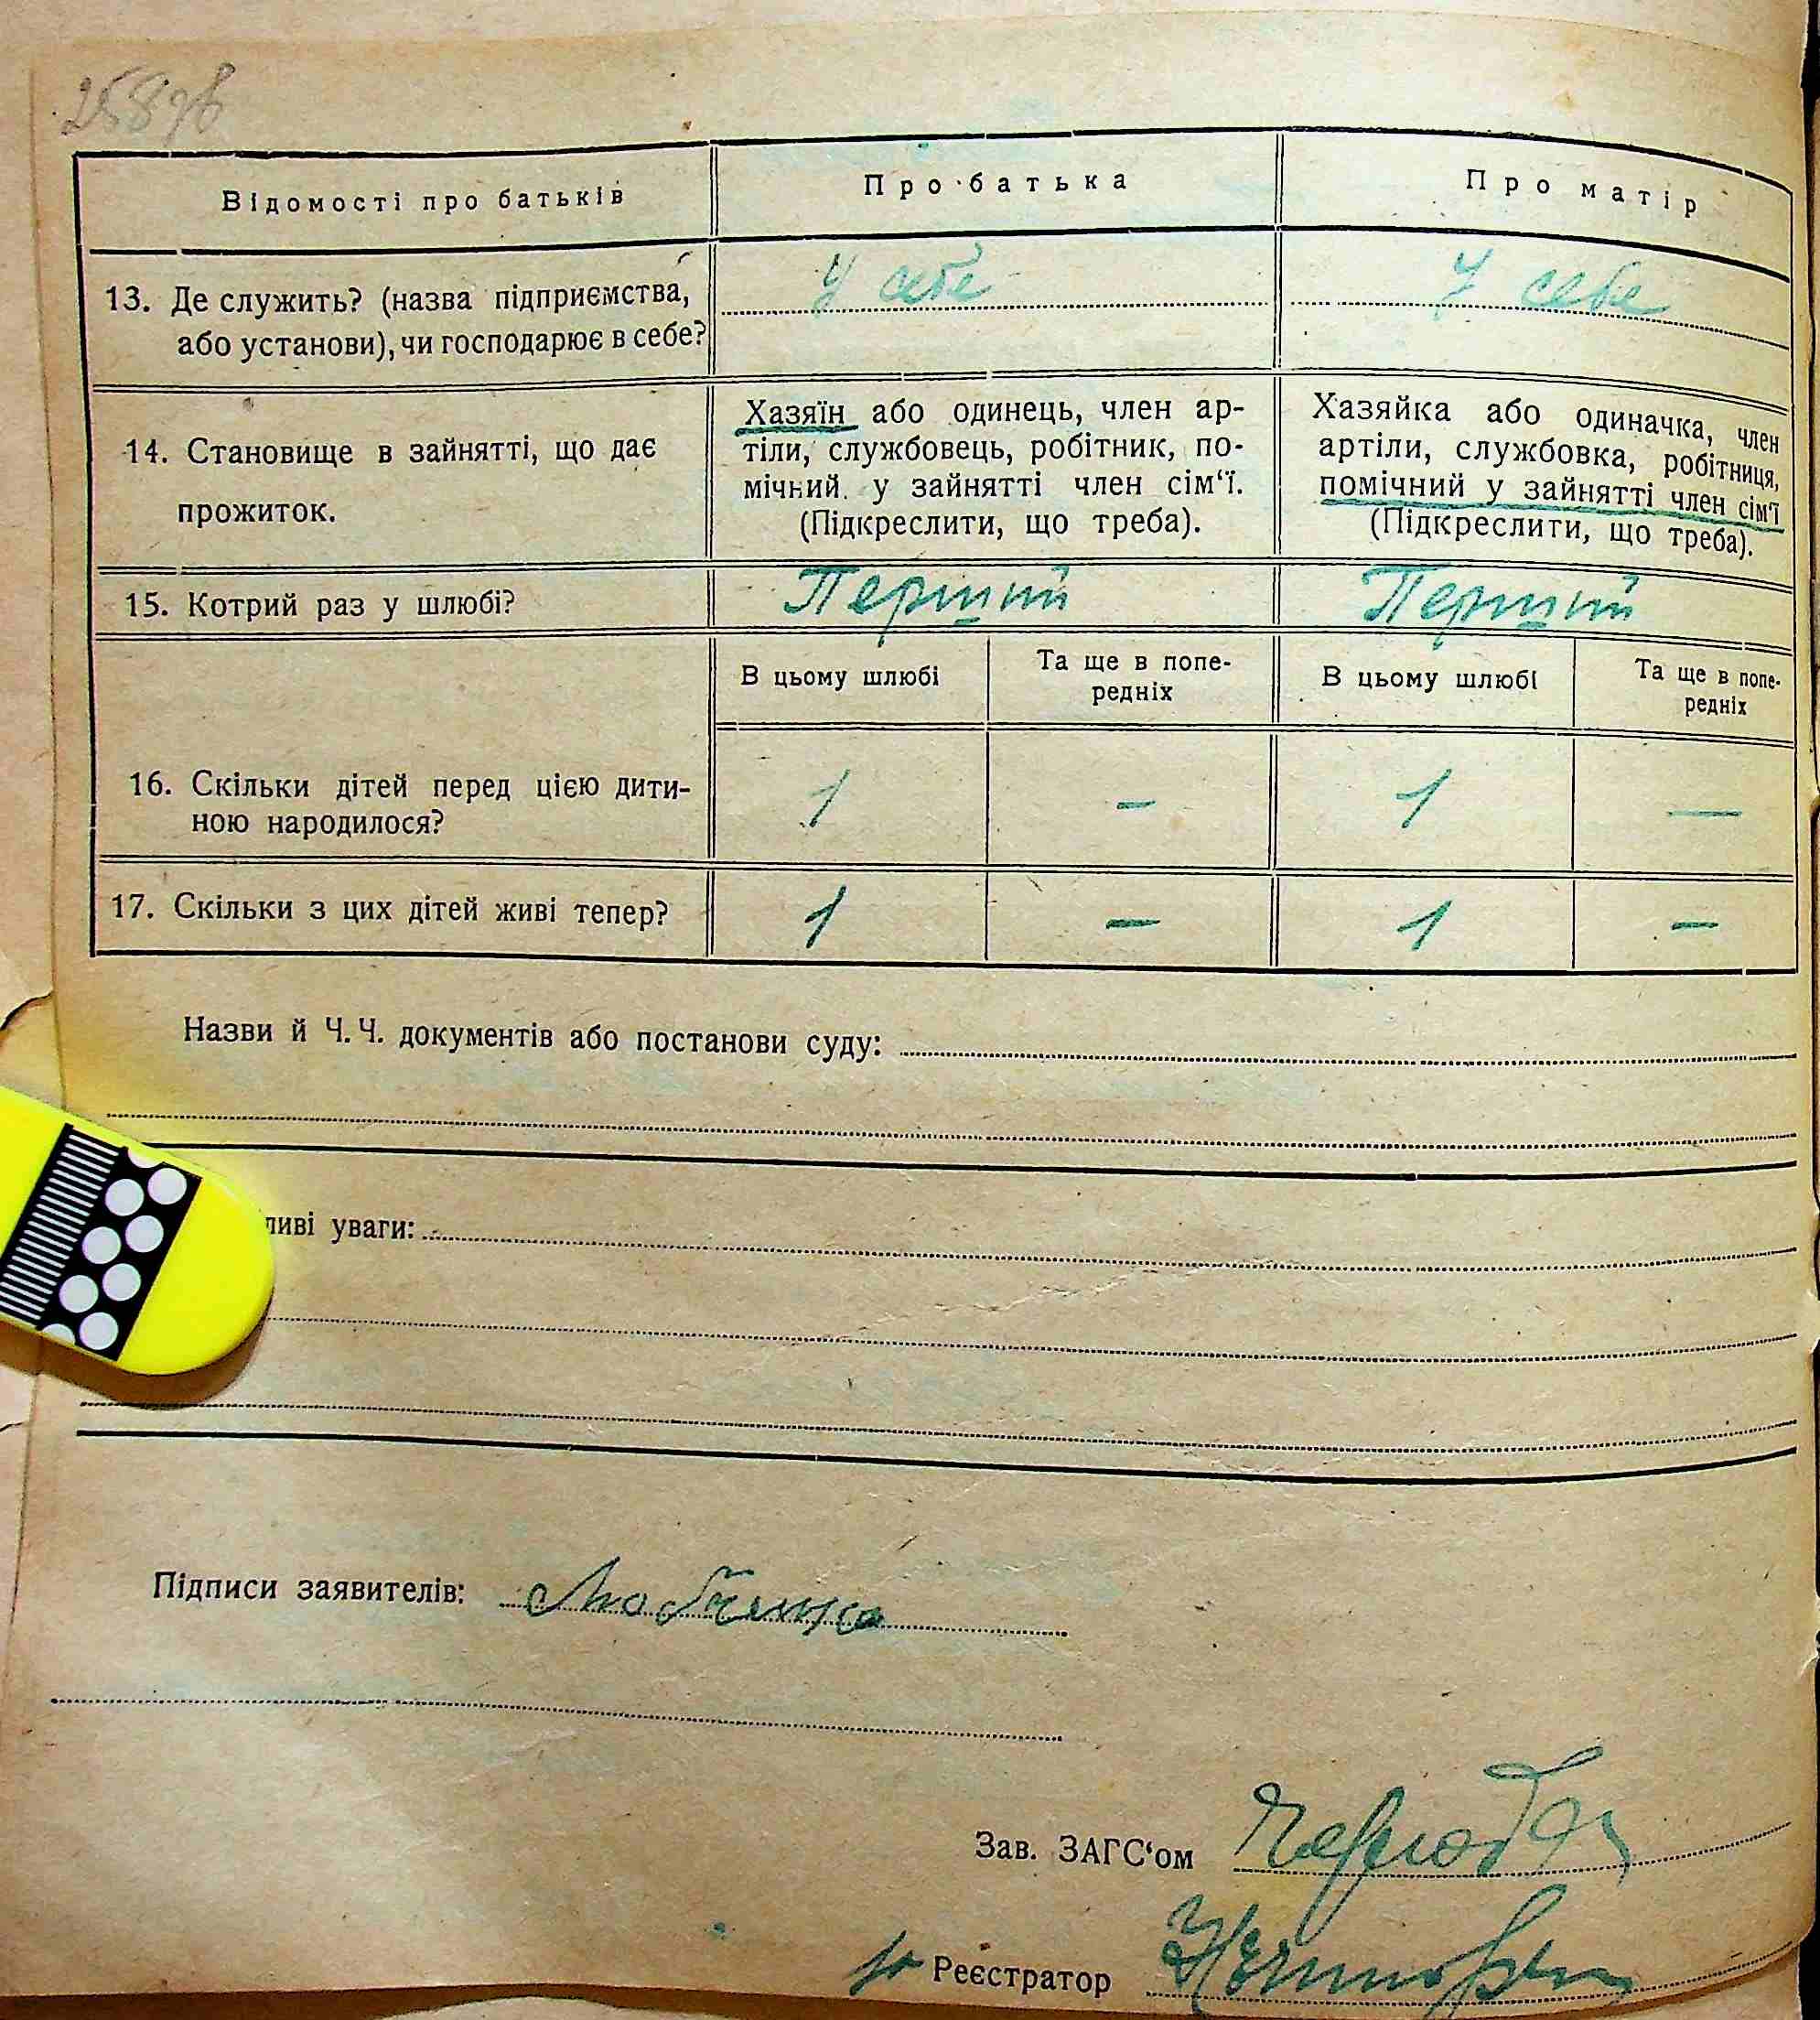 Відомості про батьків
Про батька
Про матір
13. Де служить? (назва підприємства,
або установи), чи господарює в себе?
У себе
У себе
14. Становище в зайнятті, що дає
прожиток.
Хазяїн або одинець, член ар-
тіли, службовець, робітник, по-
мічний у зайнятті член сім‘ї.
(Підкреслити, що треба).
Хазяйка або одиначка, член
артіли, службовка, робітниця,
помічний у зайнятті член сім‘ї
(Підкреслити, що треба).
15. Котрий раз у шлюбі?
Перший
Перший
В цьому шлюбі
Та ще в попе-
редніх
В цьому шлюбі
Та ще в попе-
редніх
16. Скільки дітей перед цією дити-
ною народилося?
1
—
1
—
17. Скільки з цих дітей живі тепер?
1
—
1
—
Назви й Ч.Ч. документів або постанови суду:
ливі уваги:
Підписи заявителів:
Зав. ЗАГС‘ом
Реєстратор